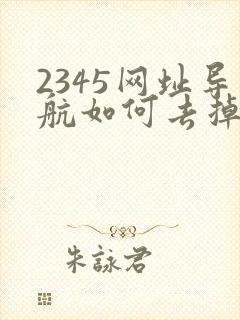 2345网址导
航如何去掉
朱詠君